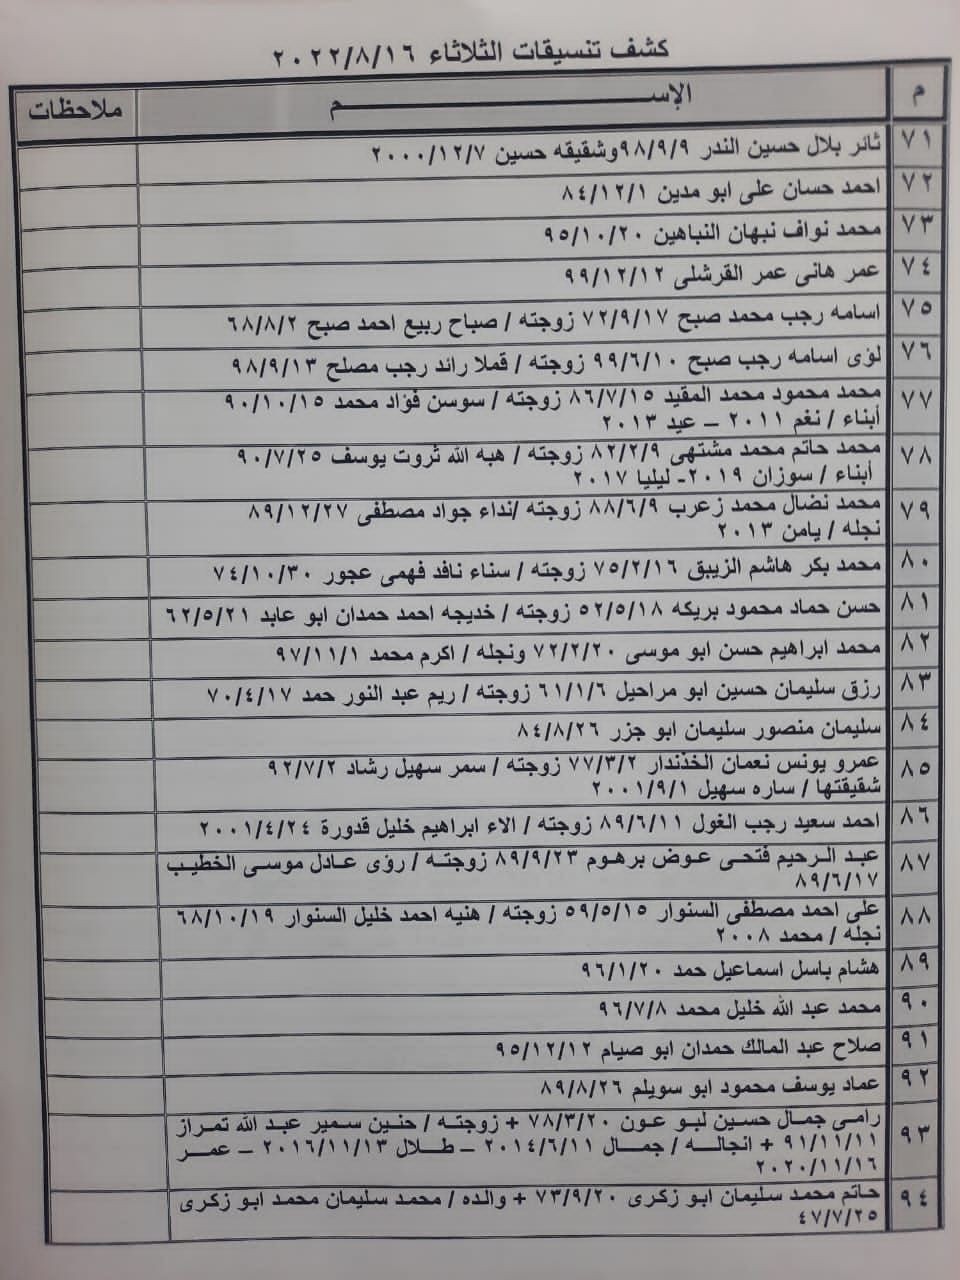 كشف تنسيقات الثلاثاء ٢٠٢٢/٨/١٦
م الإســـــم ملاحظات
٧١ ثائر بلال حسين الندر ٩٨/٩/٩وشقيقه حسين ٢٠٠٠/١٢/٧
٧٢ احمد حسان على ابو مدين ٨٤/١٢/١
٧٣ محمد نواف نبهان النباهين ٩٥/١٠/٢٠
٧٤ عمر هانى عمر القرشلى ٩٩/١٢/١٢
٧٥ اسامه رجب محمد صبح ٧٢/٩/١٧ زوجته / صباح ربيع احمد صبح ٦٨/٨/٢
٧٦ لؤى اسامه رجب صبح ٩٩/٦/١٠ زوجته / قملا رائد رجب مصلح ٩٨/٩/١٣
٧٧ محمد محمود محمد المقيد ٨٦/٧/١٥ زوجته / سوسن فؤاد محمد ٩٠/١٠/١٥
أبناء / نغم ٢٠١١ – عيد ٢٠١٣
٧٨ محمد حاتم محمد مشتهى ٨٢/٢/٩ زوجته / هبه الله ثروت يوسف ٩٠/٧/٢٥
أبناء / سوزان ٢٠١٩- ليليا ٢٠١٧
٧٩ محمد نضال محمد زعرب ٨٨/٦/٩ زوجته /نداء جواد مصطفى ٨٩/١٢/٢٧
نجله / يامن ٢٠١٣
٨٠ محمد بكر هاشم الزيبق ٧٥/٢/١٦ زوجته / سناء نافد فهمى عجور ٧٤/١٠/٣٠
٨١ حسن حماد محمود بريكه ٥٢/٥/١٨ زوجته / خديجه احمد حمدان ابو عابد ٦٢/٥/٢١
٨٢ محمد ابراهيم حسن ابو موسى ٧٢/٢/٢٠ ونجله / اكرم محمد ٩٧/١١/١
٨٣ رزق سليمان حسين ابو مراحيل ٦١/١/٦ زوجته / ريم عبد النور حمد ٧٠/٤/١٧
٨٤ سليمان منصور سليمان ابو جزر ٨٤/٨/٢٦
٨٥ عمرو يونس نعمان الخذندار ٧٧/٣/٢ زوجته / سمر سهيل رشاد ٩٢/٧/٢
شقيقتها / ساره سهيل ٢٠٠١/٩/١
٨٦ احمد سعيد رجب الغول ٨٩/٦/١١ زوجته / الاء ابراهيم خليل قدورة ٢٠٠١/٤/٢٤
٨٧ عبد الرحيم فتحى عوض برهوم ٨٩/٩/٢٣ زوجته / رؤى عادل موسى الخطيب
٨٩/٦/١٧
٨٨ على احمد مصطفى السنوار ٥٩/٥/١٥ زوجته / هنيه احمد خليل السنوار ٦٨/١٠/١٩
نجله / محمد ٢٠٠٨
٨٩ هشام باسل اسماعيل حمد ٩٦/١/٢٠
٩٠ محمد عبد الله خليل محمد ٩٦/٧/٨
٩١ صلاح عبد المالك حمدان ابو صيام ٩٥/١٢/١٢
٩٢ عماد يوسف محمود ابو سويلم ٨٩/٨/٢٦
٩٣ رامى جمال حسين لبو عون ٧٨/٣/٢٠ + زوجته / حنين سمير عبد الله تمراز
٩١/١١/١١ + انجاله / جمال ٢٠١٤/٦/١١ – طلال ٢٠١٦/١١/١٣ – عمر
٢٠٢٠/١١/١٦
٩٤ حاتم محمد سليمان ابو زكرى ٧٣/٩/٢٠ + والده / محمد سليمان محمد ابو زكرى
٤٧/٧/٢٥